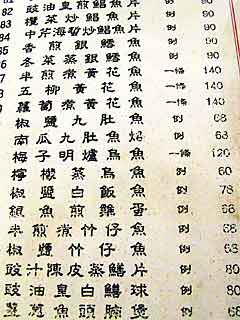 81 豉油皇煎鯧魚片 例 90
82 欖菜炒鯧魚片 例 90
83 中芹海蜇炒鯧魚 例 90
84 香煎銀鱈魚 例 90
85 冬菜蒸銀鱈魚 例 90
86 半煎煮黃花魚 一條 140
87 五柳黃花魚 一條 140
88 蘿蔔煮黃花魚 一條 140
89 椒鹽九肚魚 例 68
90 南瓜九肚魚烙 例 63
91 梅子明爐烏魚 一條 120
檸檬蒸烏魚 例 60
椒鹽白飯魚 例 78
銀魚煎雞蛋 例 68
半煎煮竹仔魚 例 68
椒鹽竹仔魚 例 68
豉汁陳皮蒸鱔片 例 80
豉油皇白鱔球 例 80
薑蔥魚頭腩煲 例 68